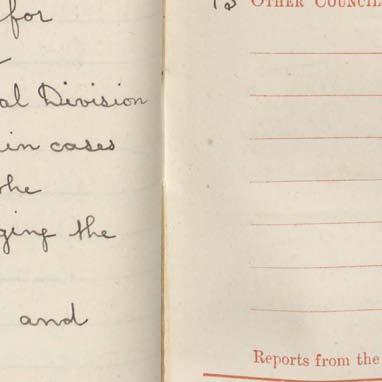 for
al Division
in cases
the
ging the
and
OTHER COUNCIL
Reports from the